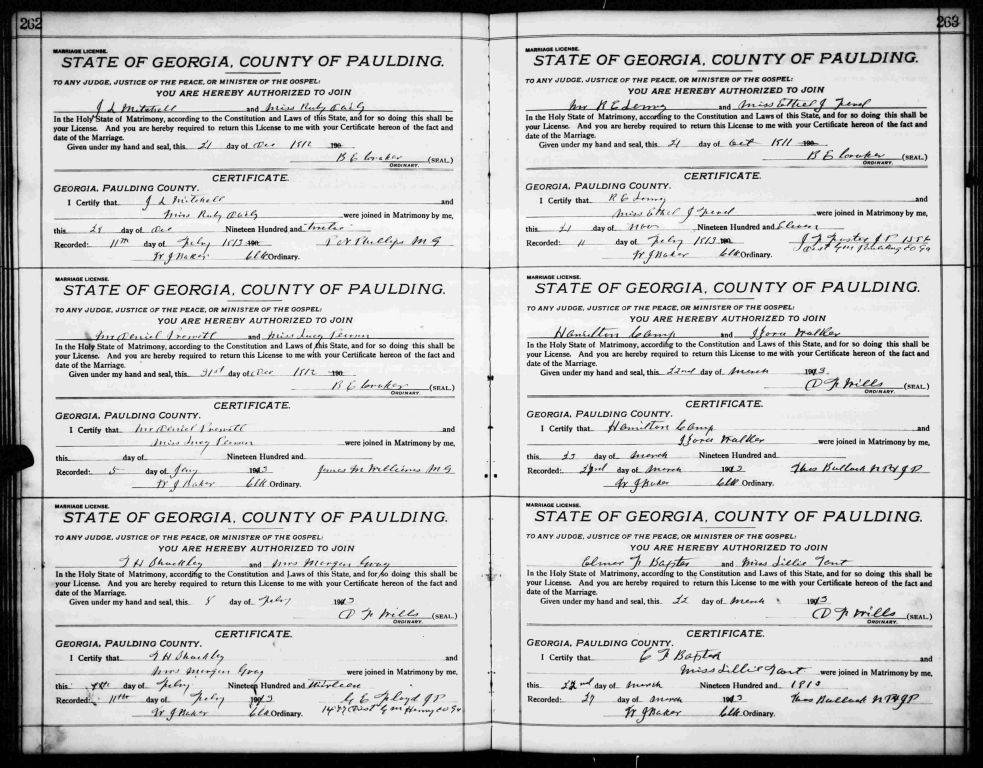 262
MARRIAGE LICENSE.
STATE OF GEORGIA, COUNTY OF PAULDING.
TO ANY JUDGE, JUSTICE OF THE PEACE, OR MINISTER OF THE GOSPEL:
YOU ARE HEREBY AUTHORIZED TO JOIN
J L Mitchell and Miss Ruby
In the Holy State of Matrimony, according to the Constitution and Laws of this State, and for so doing this shall be
your License. And you are hereby required to return this License to me with your Certificate hereon of the fact and
date of the Marriage.
Given under my hand and seal, this 21 day of Dec 1912 190
B E (SEAL.)
ORDINARY.
CERTIFICATE.
GEORGIA, PAULDING COUNTY.
I Certify that J L Mitchell and
Miss Ruby were joined in Matrimony by me,
this 25 day of Dec Nineteen Hundred and twelve
Recorded: 11th day of Feby 1913 190 Phillips M G
W J Baker Clk Ordinary.
MARRIAGE LICENSE.
STATE OF GEORGIA, COUNTY OF PAULDING.
TO ANY JUDGE, JUSTICE OF THE PEACE, OR MINISTER OF THE GOSPEL:
YOU ARE HEREBY AUTHORIZED TO JOIN
Mr Daniel Prewett and Miss Lucy
In the Holy State of Matrimony, according to the Constitution and Laws of this State, and for so doing this shall be
your License. And you are hereby required to return this License to me with your Certificate hereon of the fact and
date of the Marriage.
Given under my hand and seal, this 31st day of Dec 1912 190
B E (SEAL.)
ORDINARY.
CERTIFICATE.
GEORGIA, PAULDING COUNTY.
I Certify that Mr Daniel Prewett and
Miss Lucy were joined in Matrimony by me,
this day of Nineteen Hundred and
Recorded: 5 day of Jany 1913 James M Williams M G
W J Baker Clk Ordinary.
MARRIAGE LICENSE.
STATE OF GEORGIA, COUNTY OF PAULDING.
TO ANY JUDGE, JUSTICE OF THE PEACE, OR MINISTER OF THE GOSPEL:
YOU ARE HEREBY AUTHORIZED TO JOIN
T H Shockley and Mrs Morgan Gray
In the Holy State of Matrimony, according to the Constitution and Laws of this State, and for so doing this shall be
your License. And you are hereby required to return this License to me with your Certificate hereon of the fact and
date of the Marriage.
Given under my hand and seal, this 8 day of Feby 1913
O F Mills (SEAL.)
ORDINARY.
CERTIFICATE.
GEORGIA, PAULDING COUNTY.
I Certify that T H Shockley and
Mrs Morgan Gray were joined in Matrimony by me,
this day of Feby Nineteen Hundred and thirteen
Recorded: 11th day of Feby 1913 G E Floyd J P
W J Baker Clk Ordinary. Dist G M Co Ga
263
MARRIAGE LICENSE.
STATE OF GEORGIA, COUNTY OF PAULDING.
TO ANY JUDGE, JUSTICE OF THE PEACE, OR MINISTER OF THE GOSPEL:
YOU ARE HEREBY AUTHORIZED TO JOIN
Mr R E and Miss Ethel J
In the Holy State of Matrimony, according to the Constitution and Laws of this State, and for so doing this shall be
your License. And you are hereby required to return this License to me with your Certificate hereon of the fact and
date of the Marriage.
Given under my hand and seal, this 21 day of Oct 1911 190
B E (SEAL.)
ORDINARY.
CERTIFICATE.
GEORGIA, PAULDING COUNTY.
I Certify that R E and
Miss Ethel J were joined in Matrimony by me,
this 21 day of Nov Nineteen Hundred and Eleven
Recorded: 11 day of Feby 1913 190 J F Foster J P
W J Baker Clk Ordinary. Dist G M Paulding Co Ga
MARRIAGE LICENSE.
STATE OF GEORGIA, COUNTY OF PAULDING.
TO ANY JUDGE, JUSTICE OF THE PEACE, OR MINISTER OF THE GOSPEL:
YOU ARE HEREBY AUTHORIZED TO JOIN
Hamilton Camp and Walker
In the Holy State of Matrimony, according to the Constitution and Laws of this State, and for so doing this shall be
your License. And you are hereby required to return this License to me with your Certificate hereon of the fact and
date of the Marriage.
Given under my hand and seal, this 22nd day of March 1913
O F Mills (SEAL.)
ORDINARY.
CERTIFICATE.
GEORGIA, PAULDING COUNTY.
I Certify that Hamilton Camp and
Walker were joined in Matrimony by me,
this 23 day of March Nineteen Hundred and
Recorded: day of March 1913 Thos Bullock N P & J P
W J Baker Clk Ordinary.
MARRIAGE LICENSE.
STATE OF GEORGIA, COUNTY OF PAULDING.
TO ANY JUDGE, JUSTICE OF THE PEACE, OR MINISTER OF THE GOSPEL:
YOU ARE HEREBY AUTHORIZED TO JOIN
Elmer F Baxter and Miss Lillie Tant
In the Holy State of Matrimony, according to the Constitution and Laws of this State, and for so doing this shall be
your License. And you are hereby required to return this License to me with your Certificate hereon of the fact and
date of the Marriage.
Given under my hand and seal, this 22 day of March 1913
O F Mills (SEAL.)
ORDINARY.
CERTIFICATE.
GEORGIA, PAULDING COUNTY.
I Certify that E F Baxter and
Miss Lillie Tant were joined in Matrimony by me,
this 22nd day of March Nineteen Hundred and 1913
Recorded: 29 day of March 1913 Thos Bullock N P & J P
W J Baker Clk Ordinary.